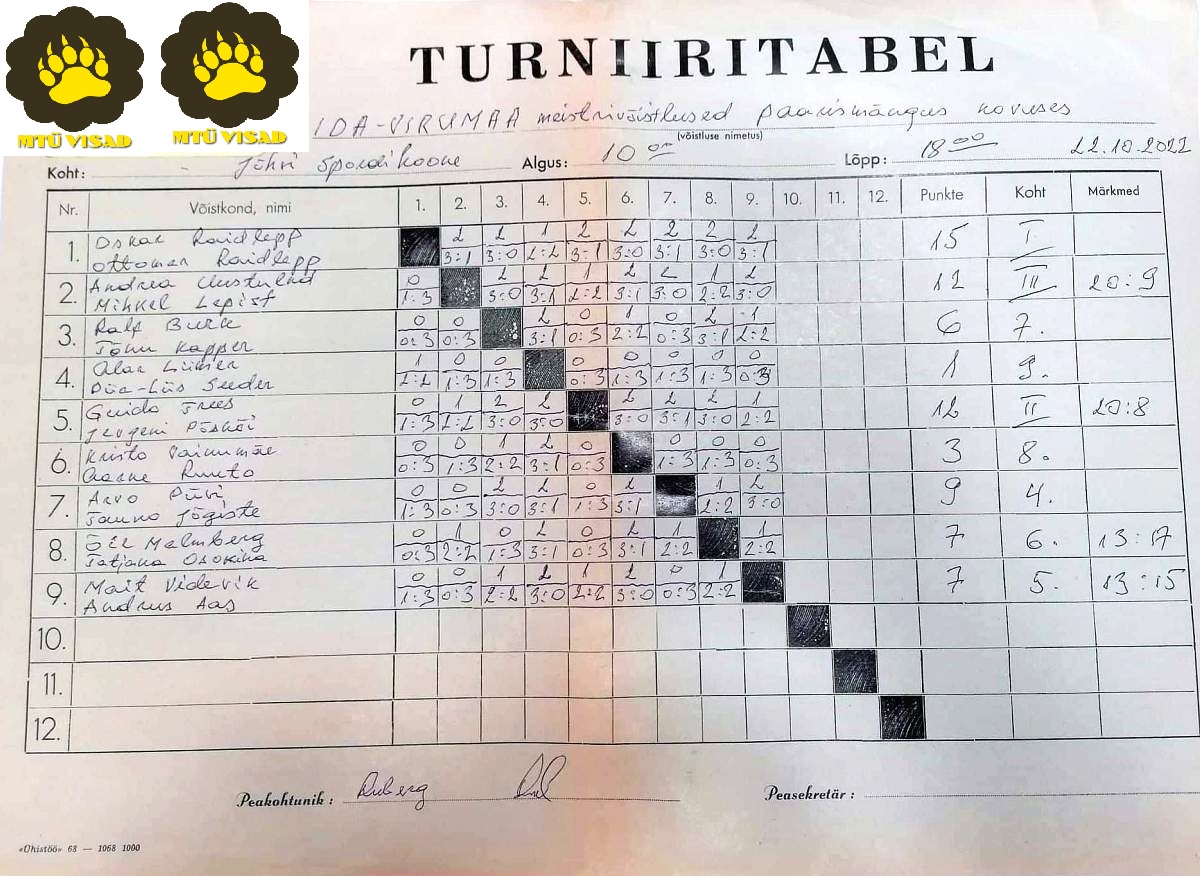 MTÜ VISAD MTÜ VISAD
TURNIIRITABEL
IDA-VIRUMAA meistrivõistlused paarismängus novuses
(võistluse nimetus)
Koht: Jõhvi Spordikoone Algus: 10 00 Lõpp: 18 00 22.10.2022
Nr. Võistkond, nimi 1. 2. 3. 4. 5. 6. 7. 8. 9. 10. 11. 12. Punkte Koht Märkmed
Oskar Raidlepp 2 2 1 2 2 2 2 2
1. 15 I
Ottomar Raidlepp 3:1 3:0 2:2 3:1 3:0 3:1 3:0 3:1
Andrea 0 2 2 1 2 2 1 2
2. 12 III 20:9
Mihkel Lepist 1:3 3:0 3:1 2:2 3:1 3:0 2:2 3:0
Ralf Burk 0 0 2 0 1 0 2 1
3. 6 7.
Tõnu Kapper 0:3 0:3 3:1 0:3 2:2 0:3 3:1 2:2
Alar 1 0 0 0 0 0 0 0
4. 1 9.
Piia-Liis Seeder 2:2 1:3 1:3 0:3 1:3 1:3 1:3 0:3
Guido Trees 0 1 2 2 2 2 2 1
5. 12 II 20:8
Jevgeni 1:3 2:2 3:0 3:0 3:0 3:1 3:0 2:2
Kristo Vainumäe 0 0 1 2 0 0 0 0
6. 3 8.
Aarne Ruuto 0:3 1:3 2:2 3:1 0:3 1:3 1:3 0:3
Arvo Püvi 0 0 2 2 0 2 1 2
7. 9 4.
Tauno Jõgiste 1:3 0:3 3:0 3:1 1:3 3:1 2:2 3:0
Malmberg 0 1 0 2 0 2 1 1
8. 7 6. 13:17
Tatjana Osokina 0:3 2:2 1:3 3:1 0:3 3:1 2:2 2:2
Mait Videvik 0 0 1 2 1 2 0 1
9. 7 5. 13:15
Andrus Aas 1:3 0:3 2:2 3:0 2:2 3:0 0:3 2:2
10.
11.
12.
Peakohtunik: Peasekretär:
«Ühistöö» 68 — 1068 1000